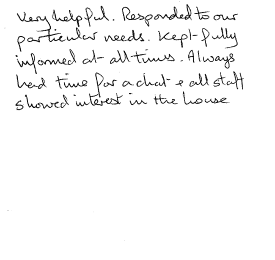 Very helpful. Responded to our
particular needs. Kept fully
informed at all times. Always
had time for a chat & all staff
showed interest in the house